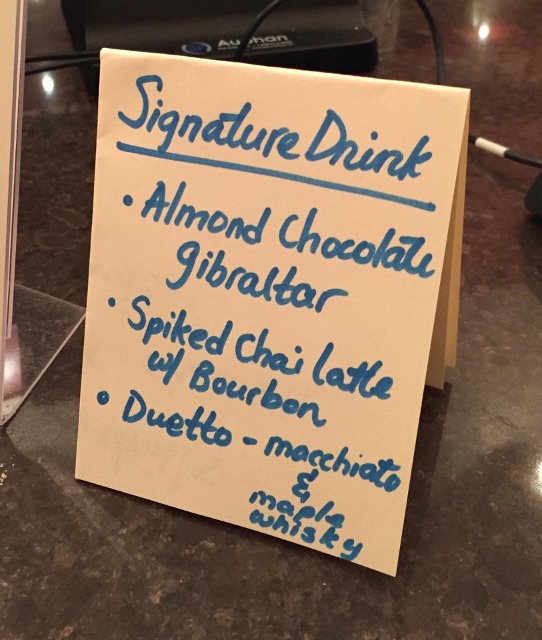 Signature Drink
• Almond Chocolate
gibraltar
• Spiked Chai latte
w/ Bourbon
• Duetto - macchiato
&
maple
whisky